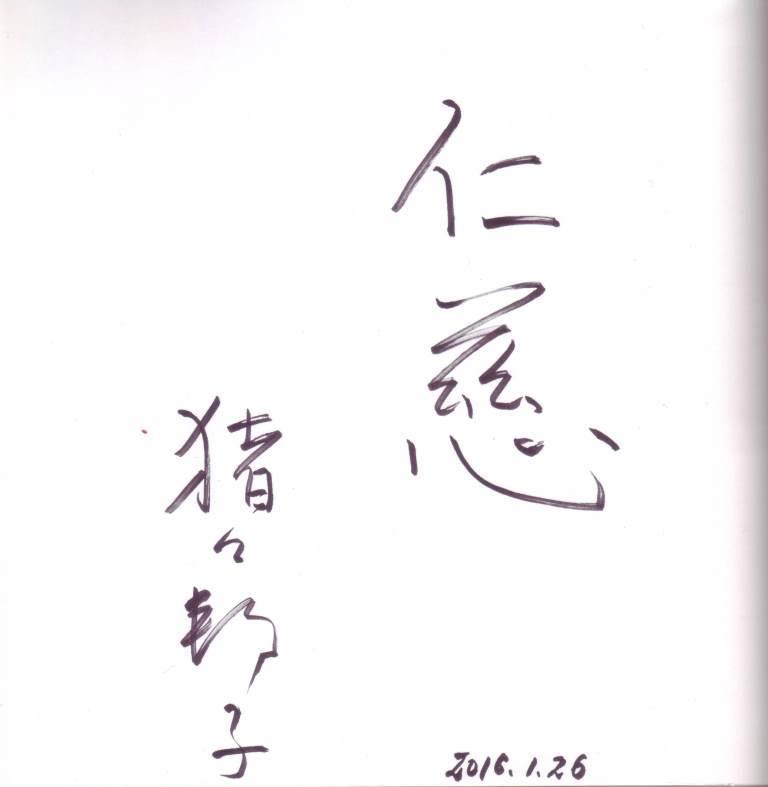 仁慈
猪口邦子
2016.1.26